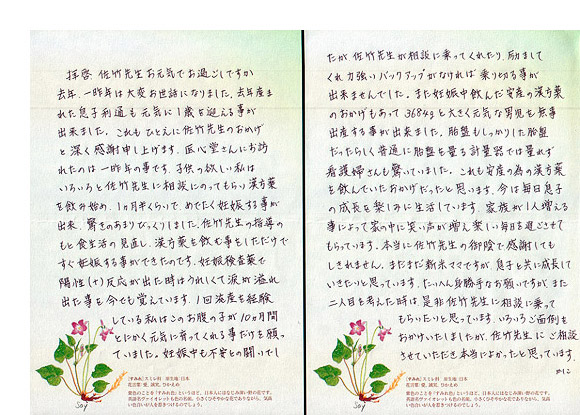 拝啓 佐竹先生お元気でお過ごしですか
去年、一昨年は大変お世話になりました。去年産ま
れた息子 も元気に1歳を迎える事が
出来ました。これもひとえに佐竹先生のおかげ
と深く感謝申し上げます。匠心堂さんにお訪
れたのは一昨年の事です。子供の欲しい私は
いろいろと佐竹先生に相談にのってもらい漢方薬
を飲み始め、1ヵ月半くらいで、めでたく妊娠する事が
出来、驚きのあまりびっくりしました。佐竹先生の指導の
もと食生活の見直し、漢方薬を飲む事をしただけで
すぐ妊娠する事ができたのです。妊娠検査薬で
陽性(+)反応が出た時はうれしくて涙が溢れ
出た事を今でも覚えています。1回流産を経験
している私はこのお腹の子が10ヵ月間
とにかく元気に育ってくれる事だけを願っ
ていました。妊娠中も不安との闘いでし
(すみれ) スミレ科 原生地:日本
花言葉:愛、誠実、ひかえめ
紫色のことを「すみれ色」というほど、日本人にはなじみ深い野の花です。
英語名ヴァイオレットも色の名前。小さくひそやかな花でありながら、気高
い色合いが人を惹きつけるのでしょう。
たが佐竹先生が相談に乗ってくれたり、励まして
くれ力強いバックアップがなければ乗り切る事が
出来ませんでした。また妊娠中飲んだ安産の漢方薬
のおかげもあって3684gと大きく元気な男児を無事
出産する事が出来ました。胎盤もしっかりした胎盤
だったらしく普通に胎盤を量る計量器では量れず
看護婦さんも驚いていました。これも安産の為の漢方薬
を飲んでいたおかげだったと思います。今は毎日息子
の成長を楽しみに生活しています。家族が1人増える
事によって家の中に笑い声が増え楽しい毎日を過ごさせて
もらっています。本当に佐竹先生の御陰で感謝しても
しきれません。まだまだ新米ママですが、息子と共に成長して
いきたいと思っています。たいへん身勝手なお願いですが、また
二人目を考えた時は、是非佐竹先生に相談に乗って
もらいたいと思っています。いろいろご面倒を
おかけいたしましたが、佐竹先生にご相談
させていただき本当によかったと思っています。
(すみれ) スミレ科 原生地:日本
花言葉:愛、誠実、ひかえめ
紫色のことを「すみれ色」というほど、日本人にはなじみ深い野の花です。
英語名ヴァイオレットも色の名前。小さくひそやかな花でありながら、気高
い色合いが人を惹きつけるのでしょう。